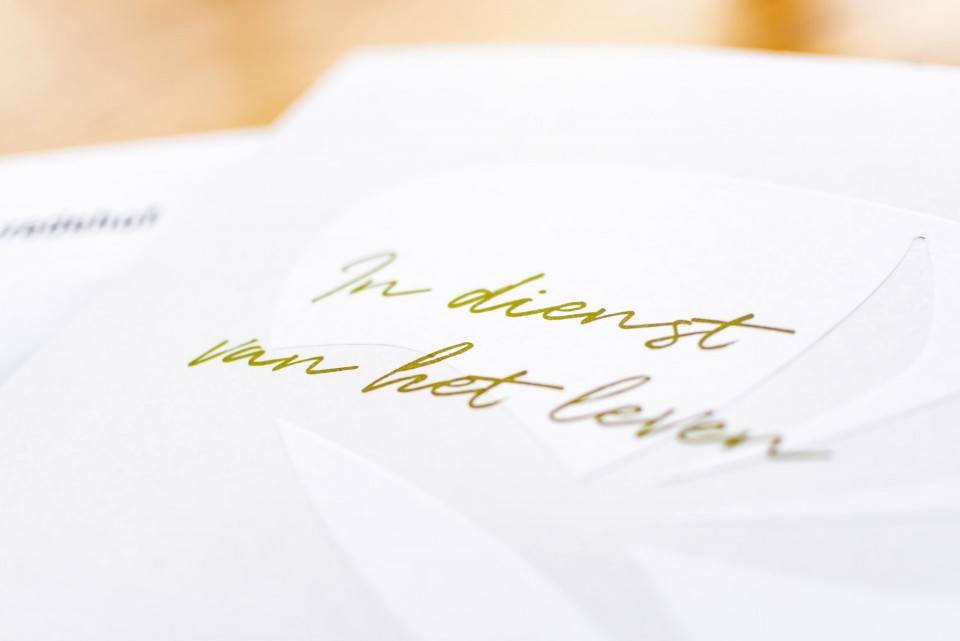 In dienst
van het leven